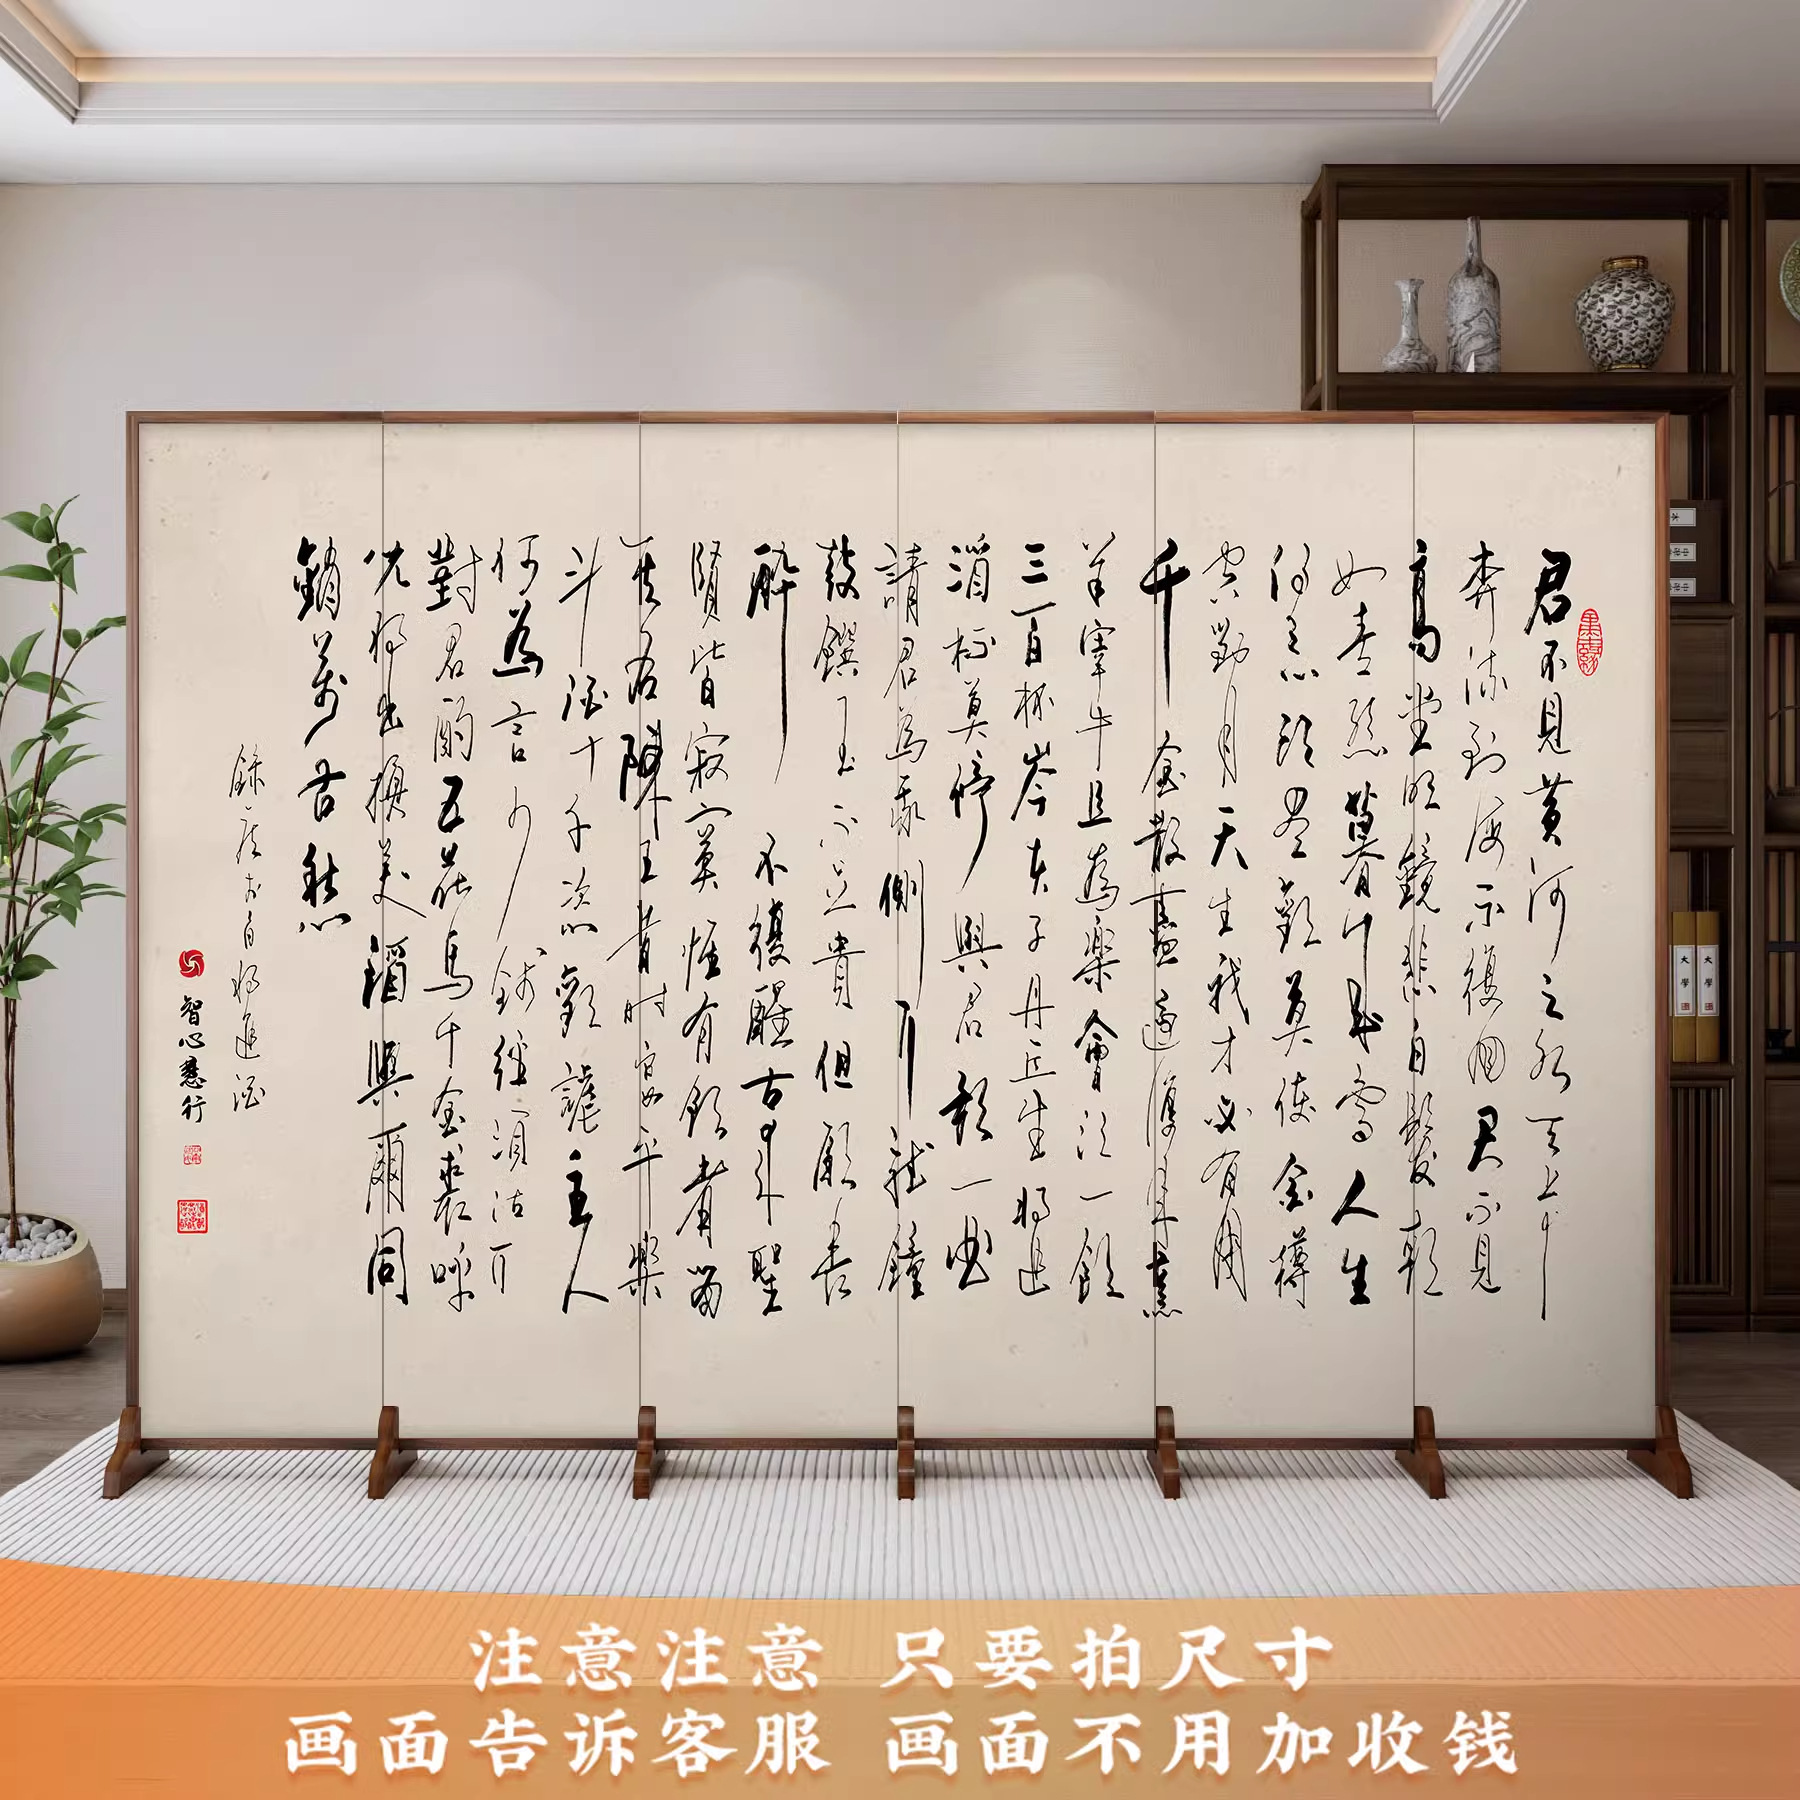 君不見黃河之水天上來
奔流到海不復回君不見
高堂明鏡悲白髮朝
如青絲暮成雪人生
得意須盡歡莫使金樽
空對月天生我才必有用
千金散盡還復來烹
羊宰牛且為樂會須一飲
三百杯岑夫子丹丘生將進
酒杯莫停與君歌一曲
請君為我側耳聽鐘
鼓饌玉不足貴但願長
醉不復醒古來聖
賢皆寂寞惟有飲者留
其名陳王昔時宴平樂
斗酒十千恣歡謔主人
何為言少錢徑須沽取
對君酌五花馬千金裘呼
兒將出換美酒與爾同
銷萬古愁
錄唐李白將進酒
智心慧行
大學
大學
注意注意 只要拍尺寸
画面告诉客服 画面不用加收钱